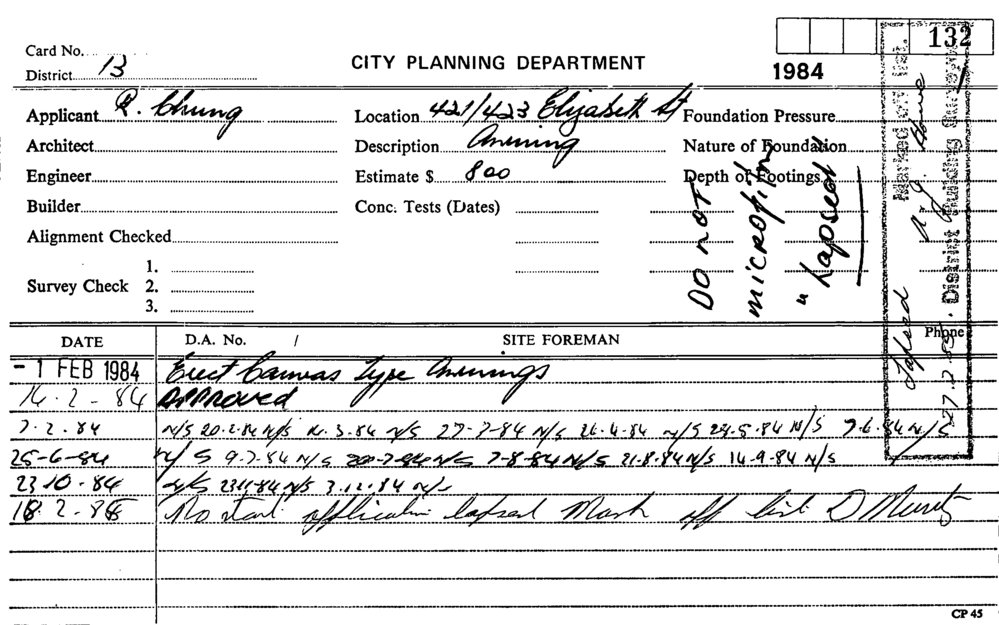 132
Card No.
District 13
CITY PLANNING DEPARTMENT
1984
Applicant R. Chung
Location 421/423 Elizabeth St
Foundation Pressure
Architect
Description Awning
Nature of Foundation
Engineer
Estimate $ 800
Depth of Footings
Builder
Conc. Tests (Dates)
Alignment Checked
Survey Check
1.
2.
3.
DO NOT
MICROFILM
"Lapsed"
Marked off list.
Lapsed
District Building Surveyor
27.2.85
DATE
D.A. No. /
SITE FOREMAN
Phone
- 1 FEB 1984 Erect Canvas type awnings
14-2-84 APPROVED
7.2.84 N/S 20.2.84 N/S 14.3.84 N/S 27-3-84 N/S 26.4.84 N/S 29.5.84 N/S 7.6.84 N/S
25-6-84 N/S 9.7.84 N/S 20-7-84 N/S 7-8-84 N/S 21.8.84 N/S 14.9.84 N/S
23.10.84 N/S 23.11.84 N/S 3.12.84 N/S
18.2.85 No start application lapsed Mark off list D
CP 45